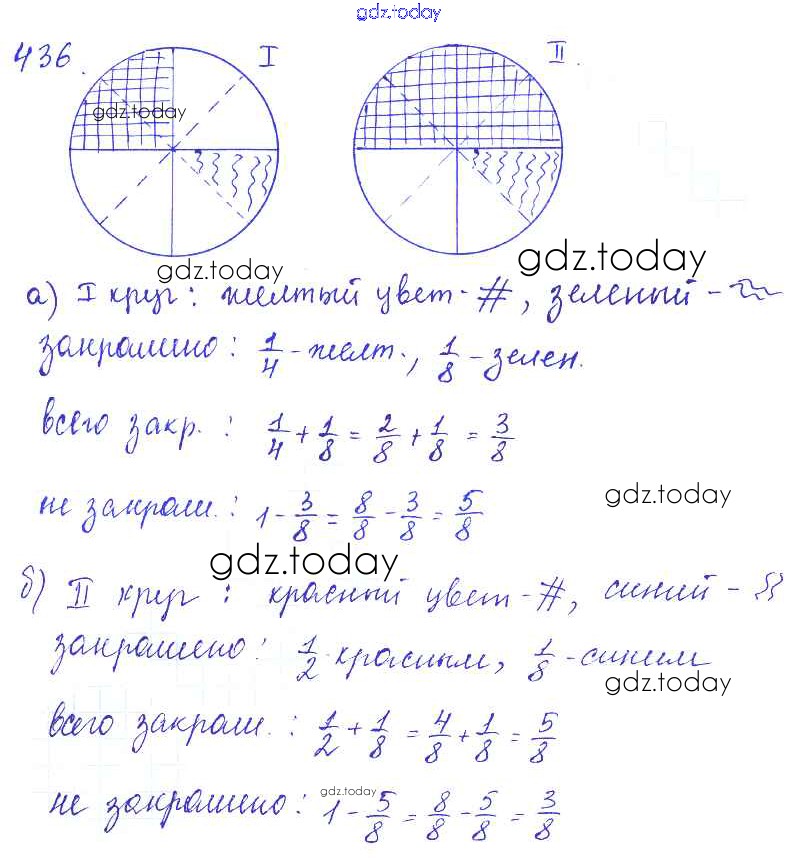 gdz.today
436. I II.
gdz.today
gdz.today gdz.today
а) I круг: желтый цвет - #, зеленый -
закрашено: 1/4 - желт., 1/8 - зелен.
всего закр.: 1/4 + 1/8 = 2/8 + 1/8 = 3/8
не закраш.: 1 - 3/8 = 8/8 - 3/8 = 5/8
gdz.today
gdz.today
б) II круг: красный цвет - #, синий -
закрашено: 1/2 - красным, 1/8 - синим
gdz.today
всего закраш.: 1/2 + 1/8 = 4/8 + 1/8 = 5/8
gdz.today
не закрашено: 1 - 5/8 = 8/8 - 5/8 = 3/8